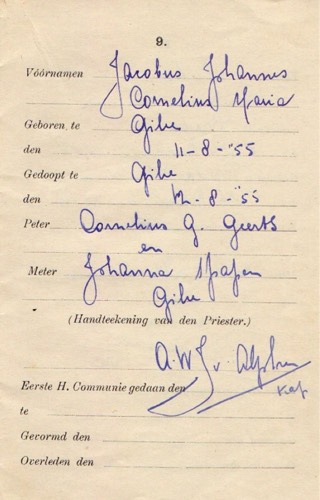 9.
Vóórnamen Jacobus Johannes
Cornelius Maria
Geboren te Gilze
den 11-8-'55
Gedoopt te Gilze
den 12-8-'55
Peter Cornelius G. Geerts
en
Meter Johanna
Gilze
(Handteekening van den Priester.)
A.W.J. v. Alphen
Kap
Eerste H. Communie gedaan den
te
Gevormd den
Overleden den